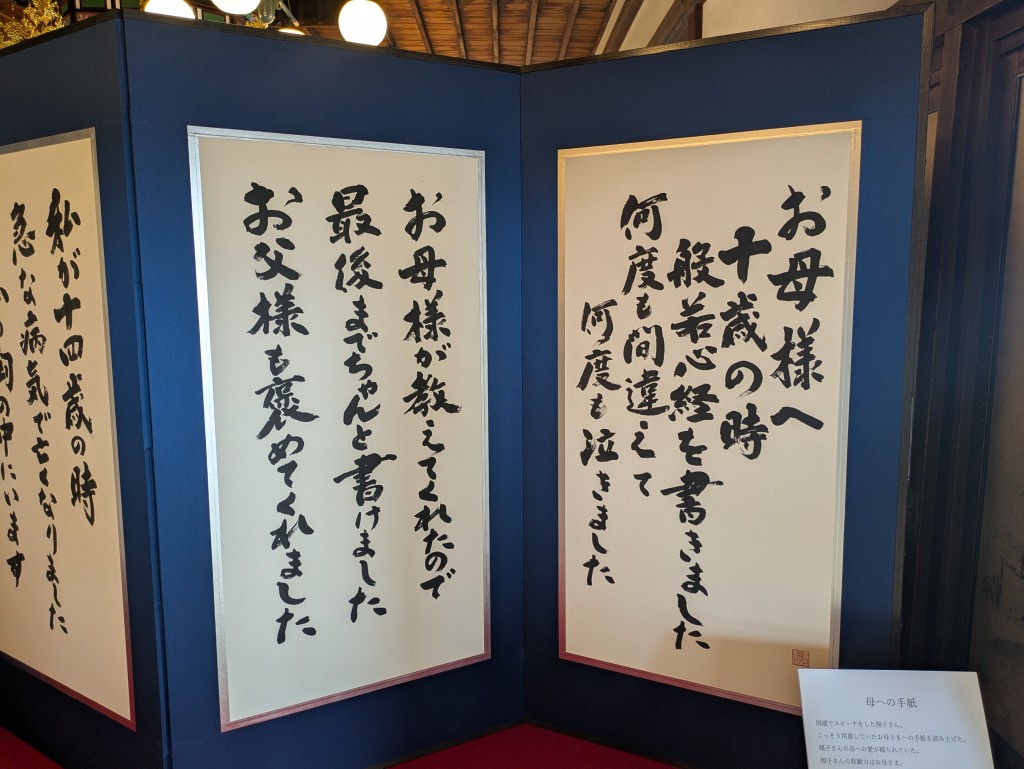 お母様へ
十歳の時
般若心経を書きました
何度も間違えて
何度も泣きました
お母様が教えてくれたので
最後までちゃんと書けました
お父様も褒めてくれました
私が十四歳の時
急な病気で亡くなりました
の胸の中にいます
母への手紙
国連でスピーチをした翔子さん。
こっそり用意していたお母さまへの手紙を読み上げた。
翔子さんの母への愛が綴られていた。
翔子さんの原動力はお母さま。